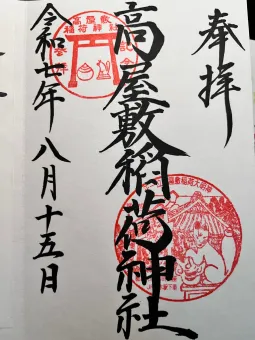 奉拝
高屋敷稲荷神社
令和七年八月十五日
高屋敷
稲荷神社